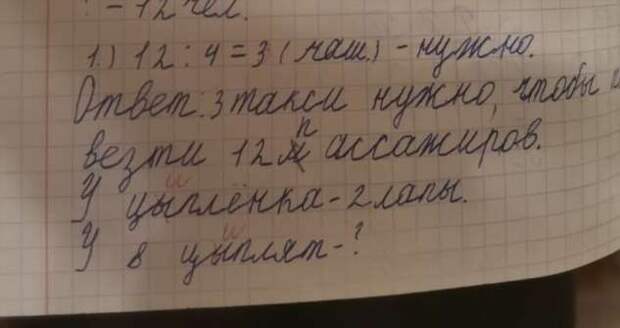 : - 12 чел.
1.) 12 : 4 = 3 (маш.) - нужно.
Ответ: 3 такси нужно, чтобы
везти 12 пассажиров.
У цыплёнка - 2 лапы.
У 8 цыплят - ?